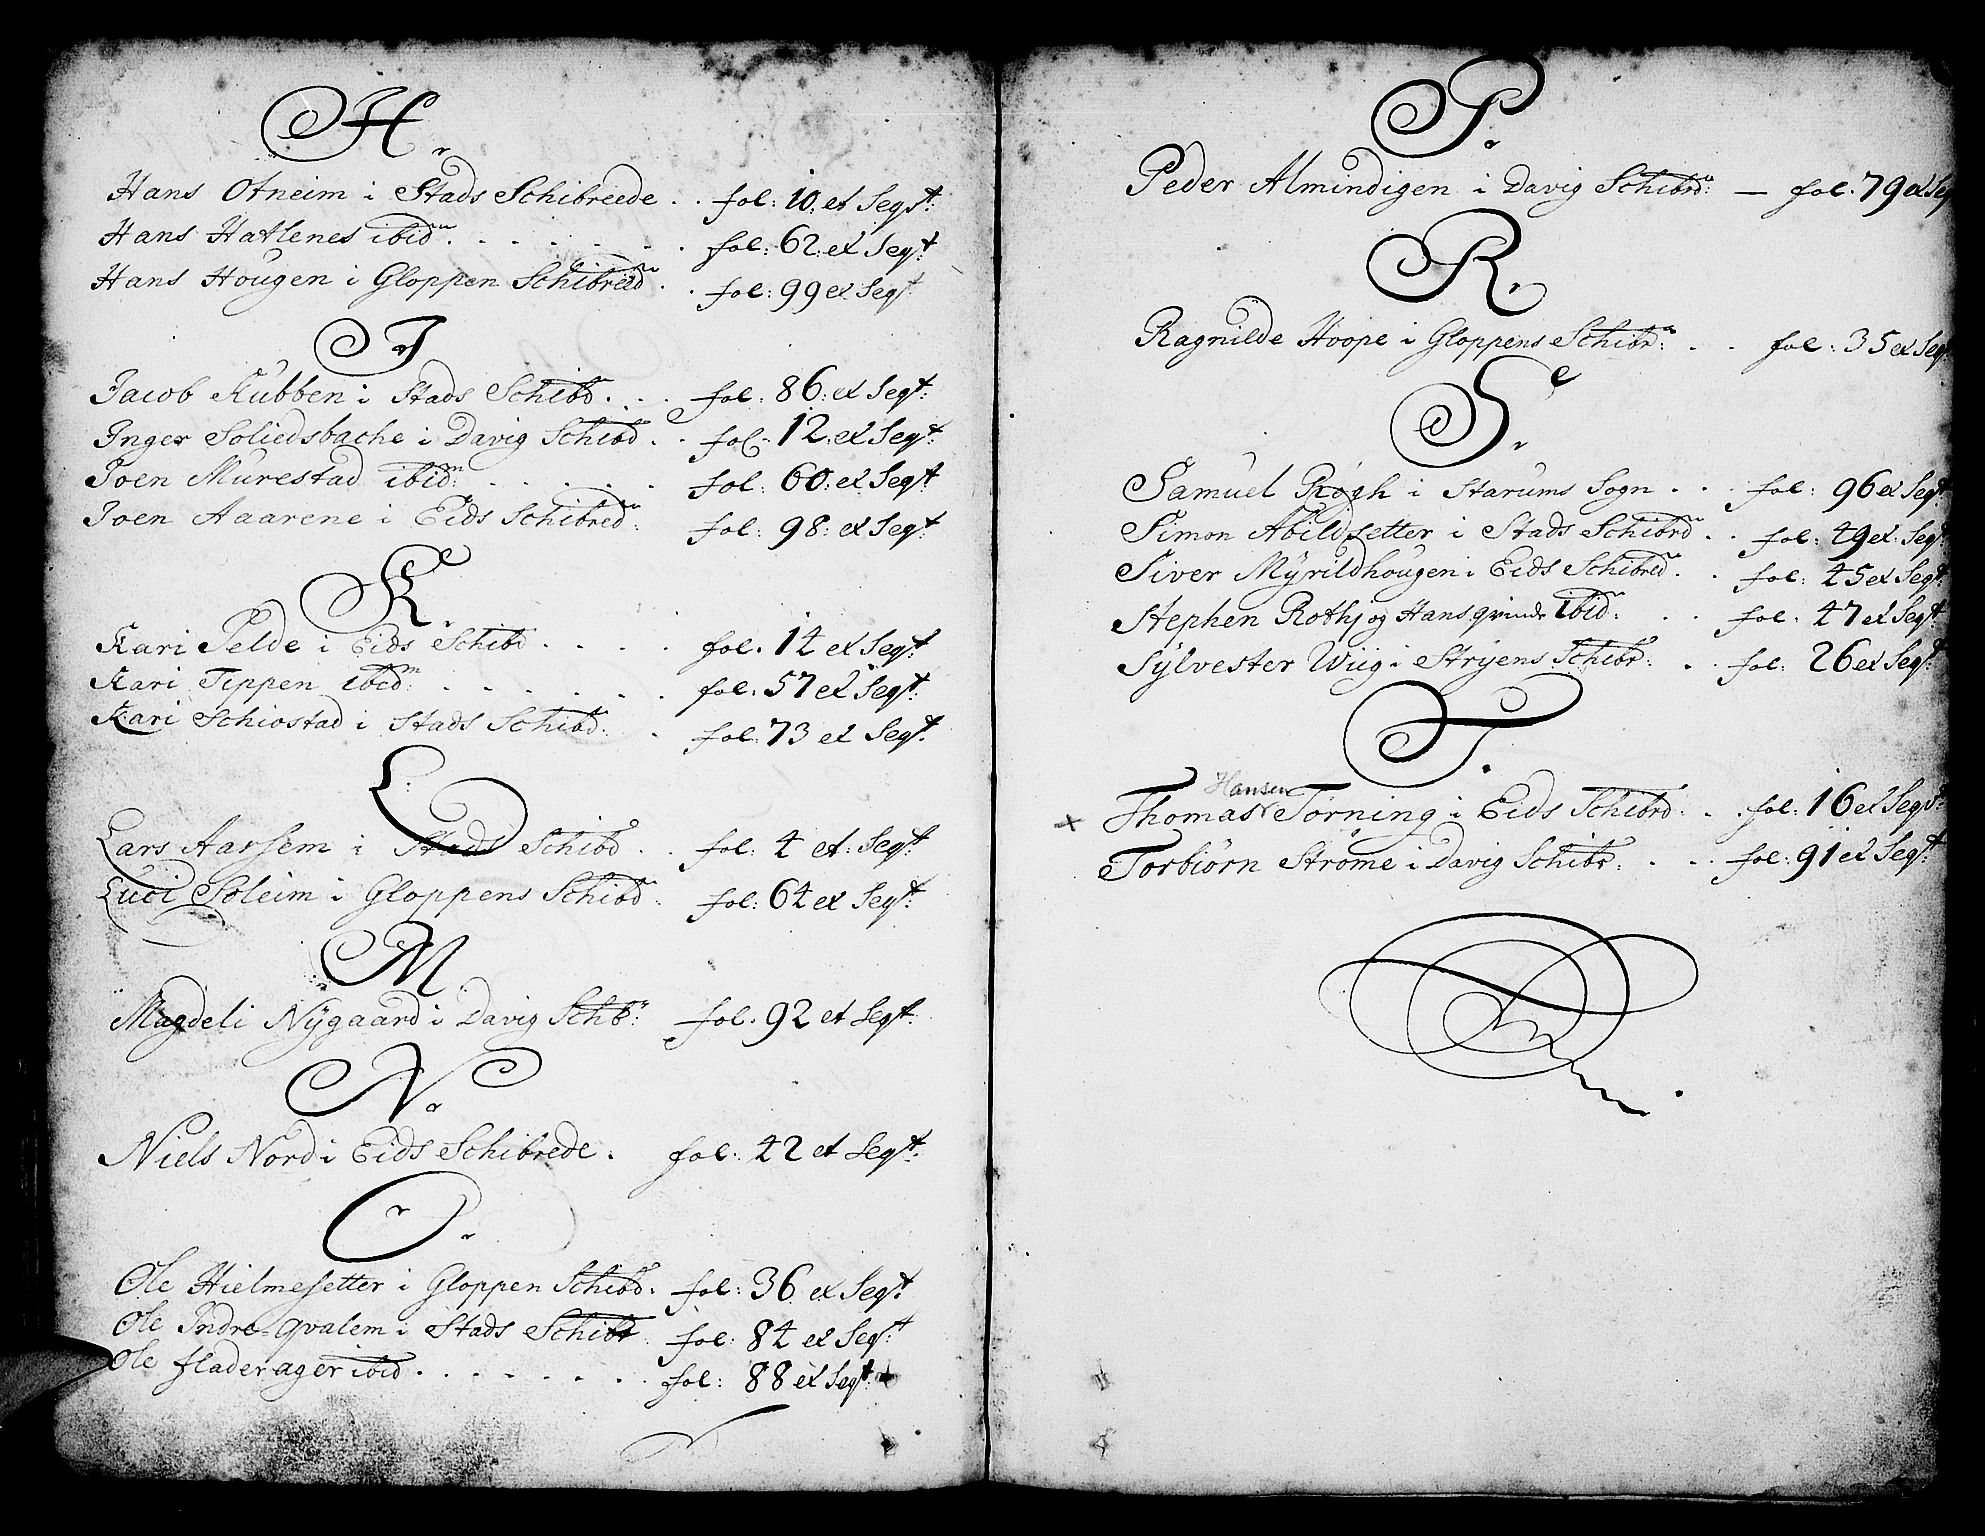 H.
Hans Otneim i Stads Schibreede . . fol: 10. et Seqvt:
Hans Hatlenes ibidm. . . . . . . fol: 62: et Seqt
Hans Hougen i Gloppen Schibreed . . fol: 99 et Seqt
J
Jacob Kubben i Stads Schibd. . . fol: 86: et Seqt:
Inger Soliedsbache i Davig Schibd . . fol: 12. et Seqt:
Joen Murestad ibidm: . . . . . fol: 60: et Seqt
Joen Aaarene i Eids Schibred: fol: 98: et Seqt
K.
Kari Pelde i Eids Schibd . . . . fol. 14 et Seqt:
Kari Teppen ibidm: . . . . . . fol: 57 et Seqt.
Kari Schiostad i Stads Schibd: . fol: 73 et Seqt:
L:
Lars Aarsem i Stads Schibd . . fol: 4 et: Seqt:
Luci Soleim i Gloppens Schibd: fol: 64 et Seqt:
M
Magdeli Nÿgaard i Davig Schb: fol. 92 et Seqt:
N.
Niels Nord i Eids Schibrede. fol: 42 et Seqt:
O.
Ole Hielmesetter i Gloppen Schibd. fol: 36 et Seqt:
Ole Indre-qvalem i Stads Schibr fol: 84 et Seqt:
Ole fladerager ibid . . . . . . . fol: 88 et Seqt:
P.
Peder Almindigen i Davig Schibrd: — fol. 79 et Seq
R.
Ragnilde Hoope i Gloppens Schibr: . . fol: 35 et Seqt
S.
Samuel Krogh i Starums Sogn . . . fol: 96 et Seqt
Simon Abildsetter i Stads Schibrd . . fol: 49 et Seqt
Siver Mÿrildhougen i Eids Schibred . . fol: 45 et Seqt
Stephen Rothj og Hans qvinde ibid: . . fol: 47 et Seqt
Sÿlvester Wiig i Stryens Schibr: . . fol: 26 et Seqt
T.
Hansen
x Thomas Torning i Eids Schibrd . . . fol: 16 et Seqvt
Torbiörn Ströme i Davig Schibr: . . . fol: 91 et Seqt